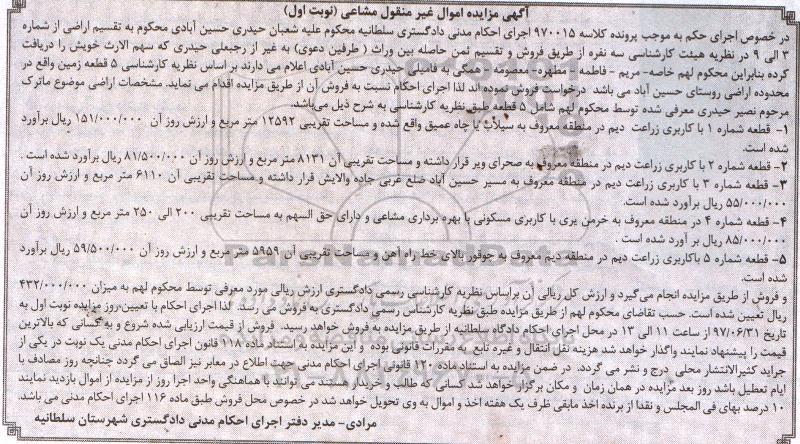 آگهی مزایده اموال غیر منقول مشاعی (نوبت اول)
در خصوص اجرای حکم به موجب پرونده کلاسه ۹۷۰۰۱۵ اجرای احکام مدنی دادگستری سلطانیه محکوم علیه شعبان حیدری حسین آبادی محکوم به تقسیم اراضی از شماره
۳ الی ۹ در نظریه هیئت کارشناسی سه نفره از طریق فروش و تقسیم ثمن حاصله بین وراث ( طرفین دعوی) به غیر از رجبعلی حیدری که سهم الارث خویش را دریافت
کرده بنابراین محکوم لهم خاصه- مریم - فاطمه - مطهره- معصومه - همگی به فامیلی حیدری حسین آبادی اعلام می دارند بر اساس نظریه کارشناسی ۵ قطعه زمین واقع در
محدوده اراضی روستای حسین آباد می باشد درخواست فروش نموده اند لذا اجرای احکام نسبت به فروش آن از طریق مزایده اقدام می نماید. مشخصات اراضی موضوع ماترک
مرحوم نصیر حیدری معرفی شده توسط محکوم لهم شامل ۵ قطعه طبق نظریه کارشناسی به شرح ذیل می‌باشد.
۱- قطعه شماره ۱ با کاربری زراعت دیم در منطقه معروف به سیلاب یا چاه عمیق واقع شده و مساحت تقریبی ۱۲۵۹۲ متر مربع و ارزش روز آن ۱۵۱/۰۰۰/۰۰۰ ریال برآورد
شده است.
۲- قطعه شماره ۲ با کاربری زراعت دیم در منطقه معروف به صحرای ویر قرار داشته و مساحت تقریبی آن ۸۱۳۱ متر مربع و ارزش روز آن ۸۱/۵۰۰/۰۰۰ ریال برآورد شده است .
۳- قطعه شماره ۳ با کاربری زراعت دیم در منطقه معروف به مسیر حسین آباد ضلع غربی جاده والایش قرار داشته و مساحت تقریبی آن ۶۱۱۰ متر مربع و ارزش روز آن
۵۵/۰۰۰/۰۰۰ ریال برآورد شده است.
۴- قطعه شماره ۴ در منطقه معروف به خرمن یری با کاربری مسکونی با بهره برداری مشاعی و دارای حق السهم به مساحت تقریبی ۲۰۰ الی ۲۵۰ متر مربع و ارزش روز آن
۸۵/۰۰۰/۰۰۰ ریال بر آورد شده است .
۵- قطعه شماره ۵ باکاربری زراعت دیم در منطقه دیم معروف به جوقور بالای خط راه آهن و مساحت تقریبی آن ۵۹۵۹ متر مربع و ارزش روز آن ۵۹/۵۰۰/۰۰۰ ریال برآورد
شده است.
و فروش از طریق مزایده انجام می‌گیرد و ارزش کل ریالی آن براساس نظریه کارشناسی رسمی دادگستری ارزش ریالی مورد معرفی توسط محکوم لهم به میزان ۴۳۲/۰۰۰/۰۰۰
ریال تعیین شده است. حسب تقاضای محکوم لهم از طریق مزایده طبق نظریه کارشناس رسمی دادگستری به فروش می رسد. لذا اجرای احکام با تعیین روز مزایده نوبت اول به
تاریخ ۹۷/۰۶/۳۱ از ساعت ۱۱ الی ۱۳ در محل اجرای احکام دادگاه سلطانیه از طریق مزایده به فروش خواهد رسید. فروش از قیمت ارزیابی شده شروع و به کسانی که بالاترین
قیمت را پیشنهاد نمایند واگذار خواهد شد هزینه نقل انتقال و غیره تابع به مقررات قانونی بوده و این مزایده به استناد ماده ۱۱۸ قانون اجرای احکام مدنی یک نوبت در یکی از
جراید کثیرالانتشار محلی درج و نشر می گردد. در ضمن مزایده به استناد ماده ۱۲۰ قانونی اجرای احکام مدنی جهت اطلاع در معابر نیز الصاق می گردد چنانچه روز مصادف با
ایام تعطیل باشد روز بعد مزایده در همان زمان و مکان برگزار خواهد شد کسانی که طالب و خریدار هستند می توانند با هماهنگی واحد اجرا روز از مزایده از اموال بازدید نمایند
۱۰ درصد بهای فی المجلس و نقدا از برنده اخذ مابقی ظرف یک هفته اخذ و اموال به وی تحویل خواهد شد در خصوص محل فروش طبق ماده ۱۱۶ اجرای احکام مدنی می باشد.
مرادی- مدیر دفتر اجرای احکام مدنی دادگستری شهرستان سلطانیه
ParsNamadData